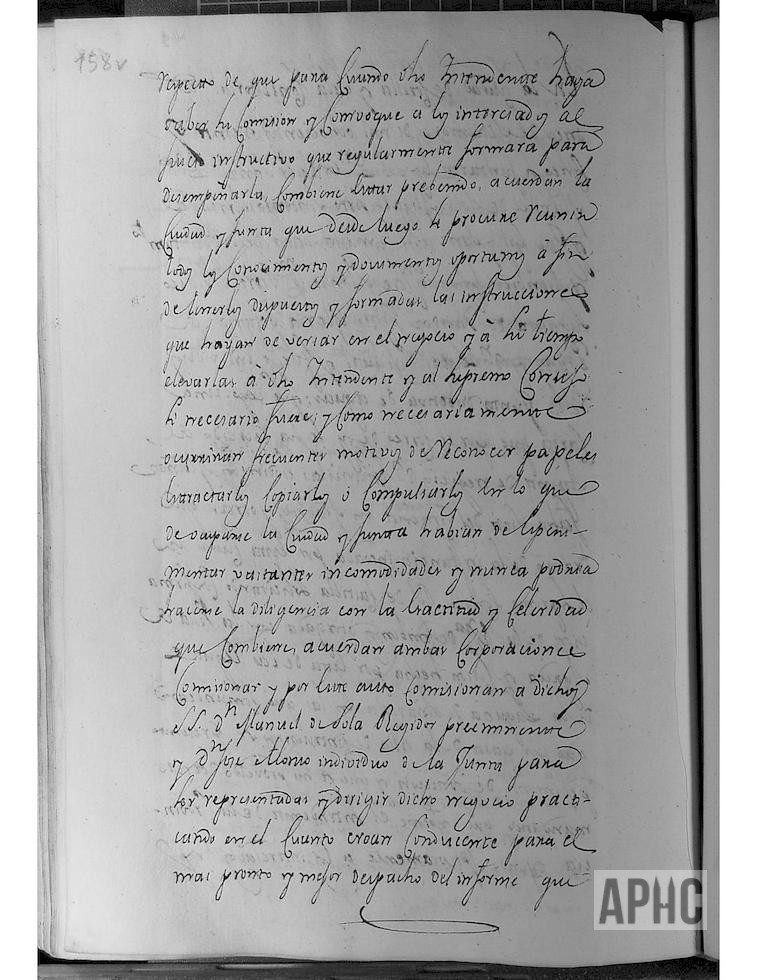 158v
respecto de que para Cuando dho Intendente haga
saber su Comision y Convoque a los interesados al
juicio instructivo que regularmente formara para
desempeñarla, Combiene estar prebenido, acuerdan la
Ciudad y Junta que desde luego se procure reunir
todos los Conocimientos y documentos oportunos à fin
de tenerlos dispuestos y formadas las instrucciones
que hayan de versar en el negocio y à su tiempo
elevarlas à dho Intendente y al supremo Consejo
si necesario fuere; y Como necesariamente
ocurriran frecuentes motivos de Reconocer papeles
Extractarlos Copiarlos ó Compulsarlos En lo que
de ocuparse la Ciudad y Junta habian de Esperi-
mentar bastantes incomodidades y nunca podria
hacerse la diligencia con la Exactitud y Celeridad
que Combiene, acuerdan ambas Corporaciones
Comisionar y por Este auto Comisionan a dichos
SS. dn Manuel de Sola Regidor preeminente
y dn Jose Alonso individuo de la Junta para
ser representadas y dirigir dicho negocio practi-
cando en el Cuanto crean Conducente para el
mas pronto y mejor despacho del informe que
APHC